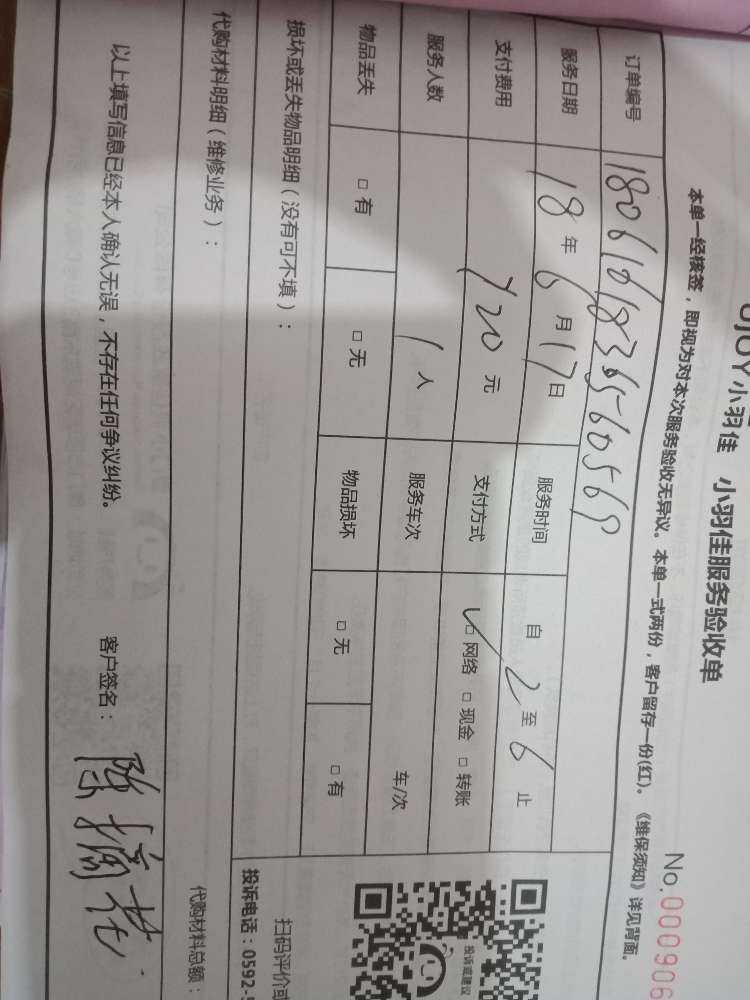 UJOY小羽佳 小羽佳服务验收单
No.0000906
本单一经核签，即视为对本次服务验收无异议。本单一式两份，客户留存一份(红)。《维保须知》详见背面。
订单编号
服务日期 18年6月17日 服务时间 自2至6止
支付费用 120元 支付方式 ☑网络 □现金 □转账
服务人数 1人 服务车次 车/次
物品丢失 □有 □无 物品损坏 □无 □有
损坏或丢失物品明细（没有可不填）：
代购材料明细（维修业务）：
代购材料总额：
以上填写信息已经本人确认无误，不存在任何争议纠纷。 客户签名：
投诉或建议
扫码评价或
投诉电话：0592-5